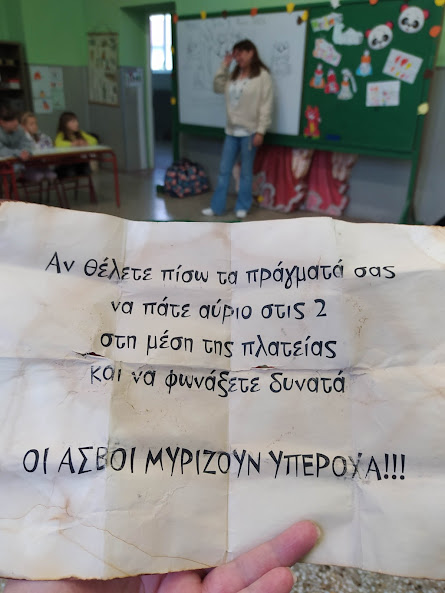 Αν θέλετε πίσω τα πράγματά σας
να πάτε αύριο στις 2
στη μέση της πλατείας
και να φωνάξετε δυνατά
ΟΙ ΑΣΒΟΙ ΜΥΡΙΖΟΥΝ ΥΠΕΡΟΧΑ!!!